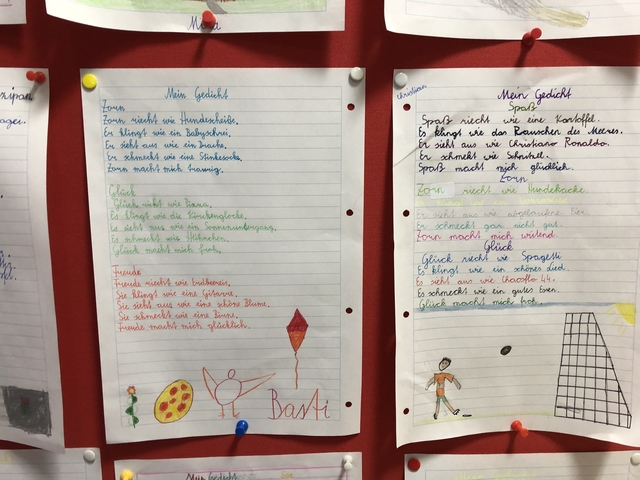 Mona
zipan
Mein Gedicht
Zorn
Zorn riecht wie Hundescheiße.
Er klingt wie ein Babyschrei.
Er sieht aus wie ein Drache.
Er schmeckt wie eine Stinksocke.
Zorn macht mich traurig.
Glück
Glück riecht wie Pizza.
Es klingt wie die Kirchenglocke.
Es sieht aus wie ein Sonnenuntergang.
Es schmeckt wie Hühnchen.
Glück macht mich froh.
Freude
Freude riecht wie Erdbeereis.
Sie klingt wie eine Gitarre.
Sie sieht aus wie eine schöne Blume.
Sie schmeckt wie eine Birne.
Freude macht mich glücklich.
Basti
Christian
Mein Gedicht
Spaß
Spaß riecht wie eine Kartoffel.
Es klingt wie das Rauschen des Meeres.
Er sieht aus wie Christiano Ronaldo.
Er schmekt wie Schnitzel.
Spaß macht mich glücklich.
Zorn
Zorn riecht wie Hundekacke.
Er sieht aus wie
Er schmeckt gar nicht gut.
Zorn macht mich wütend.
Glück
Glück riecht wie Spagetti.
Es klingt wie ein schönes Lied.
Es sieht aus wie Chaosflo 44.
Es schmeckt wie ein gutes Essen.
Glück macht mich froh.
Mein Gedicht